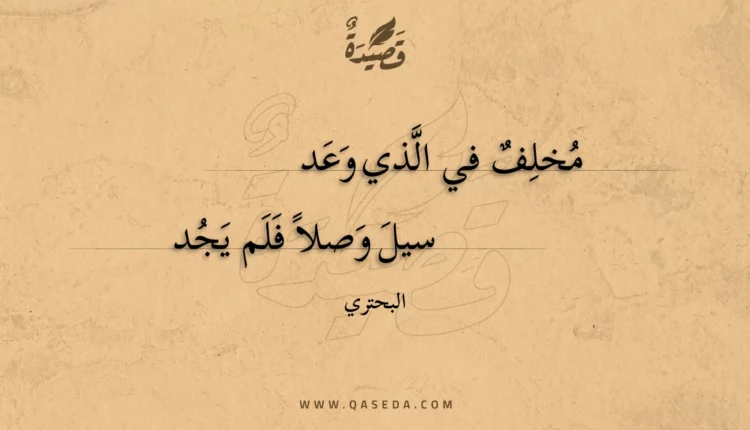 قَصِيدَةٌ
مُخلِفٌ في الَّذي وَعَد
سيلَ وَصلاً فَلَم يَجُد
البحتري
WWW.QASEDA.COM